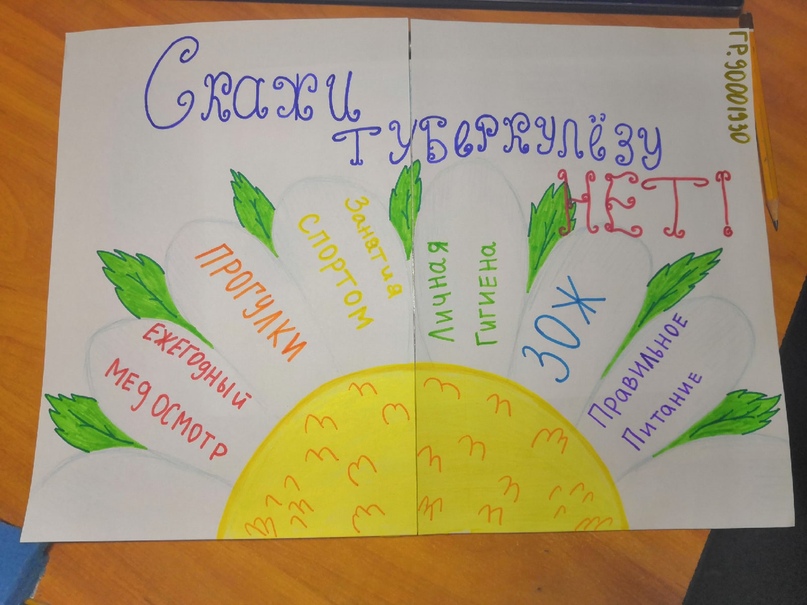 Скажи
туберкулёзу
НЕТ!
ГР.90001930
ЕЖЕГОДНЫЙ
МЕД ОСМОТР
ПРОГУЛКИ
Занятия
СПОРТОМ
Личная
Гигиена
ЗОЖ
Правильное
Питание